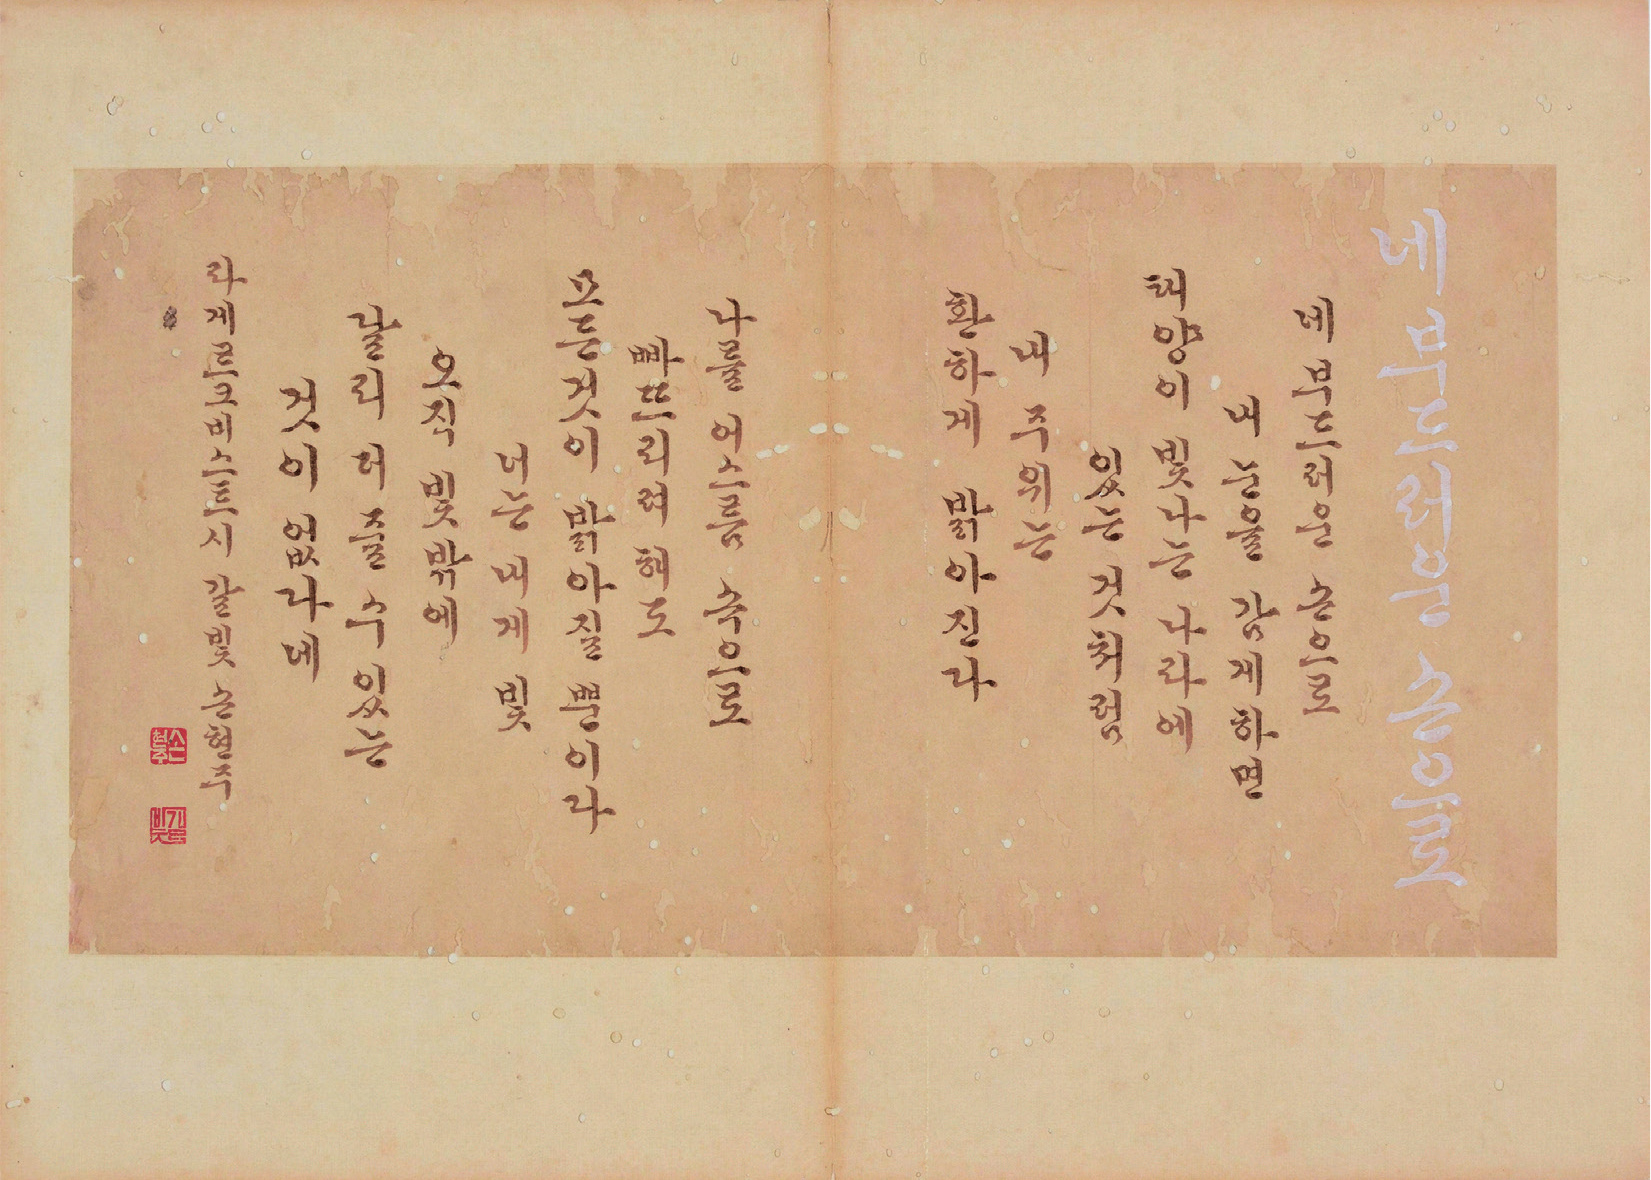 네 부드러운 손으로
네 부드러운 손으로
내 눈을 감게 하면
태양이 빛나는 나라에
있는 것처럼
내 주위는
환하게 밝아진다
나를 어스름 속으로
빠뜨리려 해도
모든 것이 밝아질 뿐이다
너는 내게 빛
오직 빛 밖에
달리 더 줄 수 있는
것이 없다네
라게르크비스트 시 갈빛 손현주
손현주